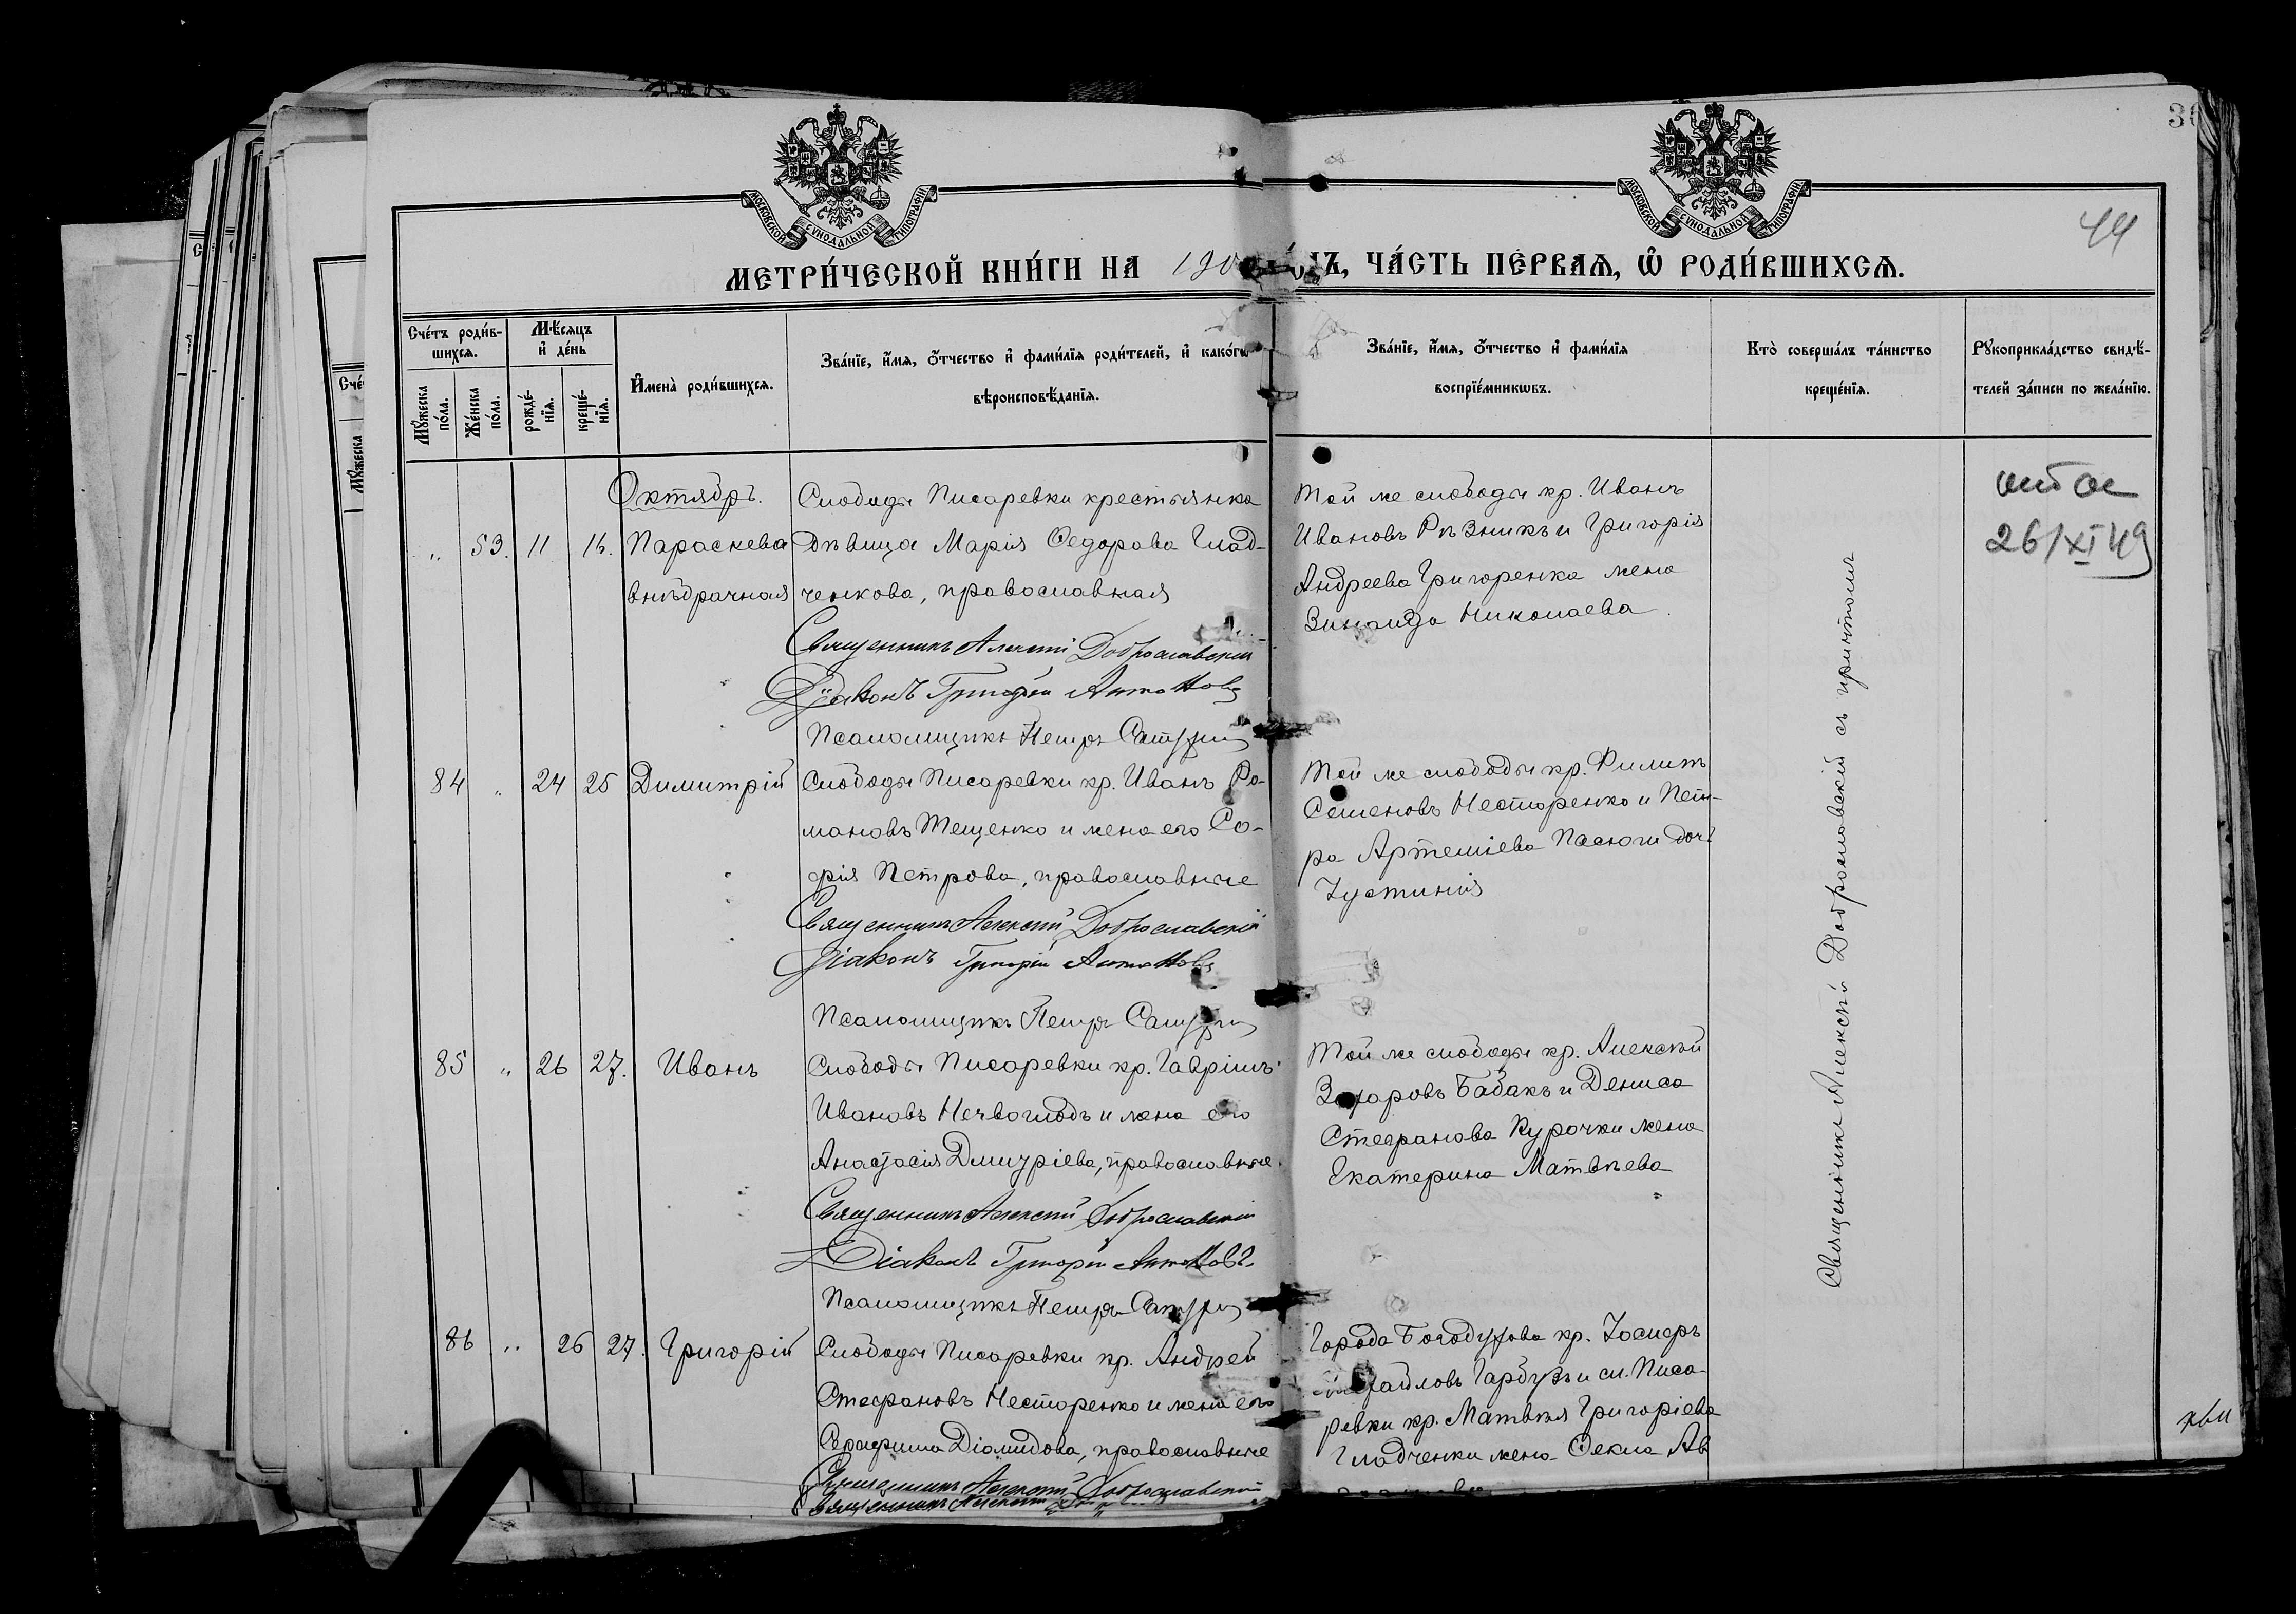 МОСКОВСКОЙ СѴНОДАЛЬНОЙ ТИПОГРАФІИ
МОСКОВСКОЙ СѴНОДАЛЬНОЙ ТИПОГРАФІИ
44
МЕТРИ́ЧЕСКОЙ КНИ́ГИ НА 190 ЧА́СТЬ ПЕ́РВАЯ, Ѡ҆ РОДИ́ВШИХСЯ.
Сче́тъ роди́в-
шихся.
Мѣ́сяцъ
и҆ де́нь
Мꙋ́жеска
по́ла.
Же́нска
по́ла.
рожде́-
нїя.
креще́-
нїя.
И҆мена̀ роди́вшихся.
Зва́нїе, и҆́мя, ѻ҆́тчество и҆ фами́лїя роди́телей, и҆ како́гѡ
вѣроисповѣ́данїя.
Зва́нїе, и҆́мя, ѻ҆́тчество и҆ фами́лїя
воспрїе́мникѡвъ.
Кто̀ соверша́лъ та́инство
креще́нїя.
Рꙋкоприкла́дство свидѣ́-
телей за́писи по жела́нїю.
Октябрь.
„ 53. 11 Параскева
внѣбрачная
Слободы Писаревки крестьянка
Дѣвица Марія Ѳедорова Глад-
ченкова, православная
Священникъ Алексѣй Доброславскій
Діаконъ Григорій Антоновъ
Псаломщикъ Петръ
Той же слободы кр. Иванъ
Ивановъ Рѣзникъ и Григорія
Андреева Григоренка жена
Зинаида Николаева
26/XI 49
84 „ 24 25 Димитрій
Слободы Писаревки кр. Иванъ Ро-
мановъ Тещенко и жена его Со-
фія Петрова, православные
Священникъ Алексѣй Доброславскій
Діаконъ Григорій Антоновъ
Псаломщикъ Петръ
Той же слободы кр. Филипъ
Семеновъ Несторенко и Пет-
ра Артеміева Пасюги дочь
Іустинія
85 „ 26 27. Иванъ
Слободы Писаревки кр. Гавріилъ
Ивановъ и жена его
Анастасія Димитріева, православные
Священникъ Алексѣй Доброславскій
Діаконъ Григорій Антоновъ
Псаломщикъ Петръ
Той же слободы кр. Алексѣй
Захаровъ Бабакъ и Дениса
Стефанова Курочки жена
Екатерина Матвѣева
86 „ 26 27. Григорій
Слободы Писаревки кр. Андрей
Стефановъ Несторенко и жена его
Серафима Діомидова, православные
Священникъ Алексѣй Доброславскій
Города Богодухова кр. Іосифъ
Михайловъ Гарбузъ и сл. Писа-
ревки кр. Матвѣя Григоріева
Гладченки жена Ѳекла Ав
Священникъ Алексѣй Доброславскій съ причтомъ